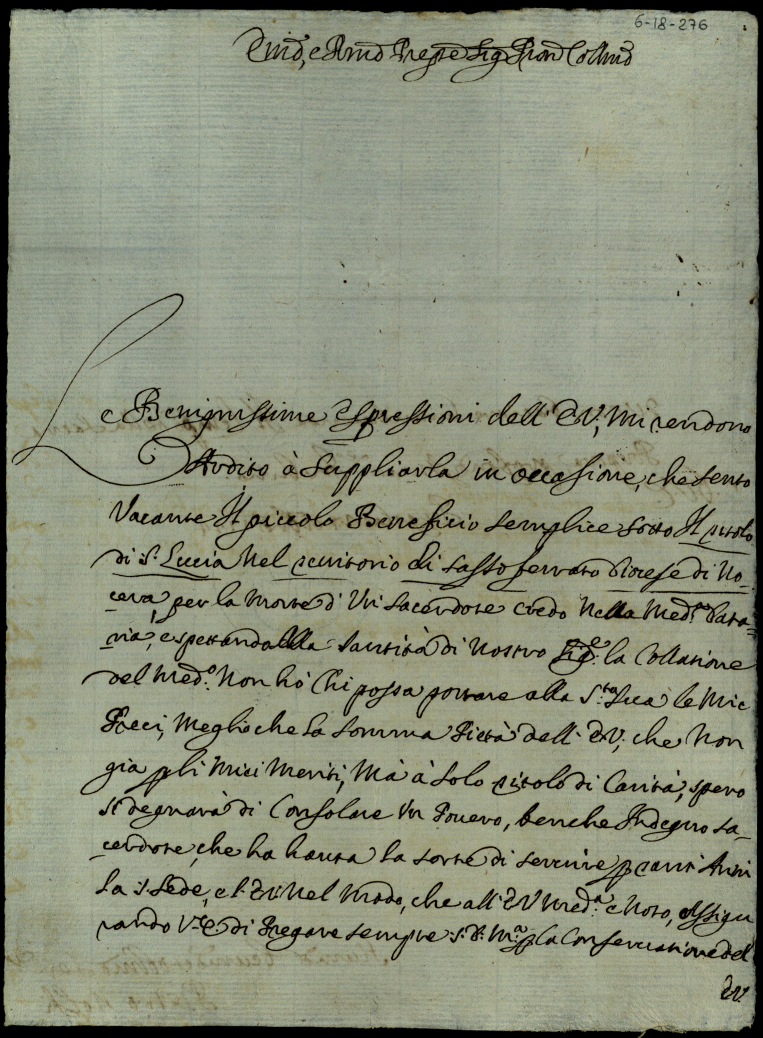 6-18-276
Emo, e Rmo Sig.
Le Benignissime espressioni dell' E V, mi rendono
Ardito à Supplicarla in occasione, che sento
Vacante Il piccolo Beneficio semplice sotto Il titolo
di S. Lucia Nel territorio di Sassoferrato Diocese di No-
cera, per la Morte d' Un sacerdote credo Nella Med.ma
ria, e spettando alla Santità di Nostro Sig.e la Collatione
del Med.o Non hò Chi possa portare alla S.ta Sua le Mie
Preci, Meglio che La somma Pietà dell' E V; che Non
gia p li Miei Meriti, Mà à Solo titolo di Carità, spero
si degnarà di Consolare Un Povero, benche Indegno Sa-
cerdote, che ha hauta La sorte di servire p tanti Anni
La S. Sede, e l' E V Nel Modo, che all' E V Med.a è Noto, Assigu
rando V. E. di Pregare sempre S. D. M.a p la Conservatione del
E V.